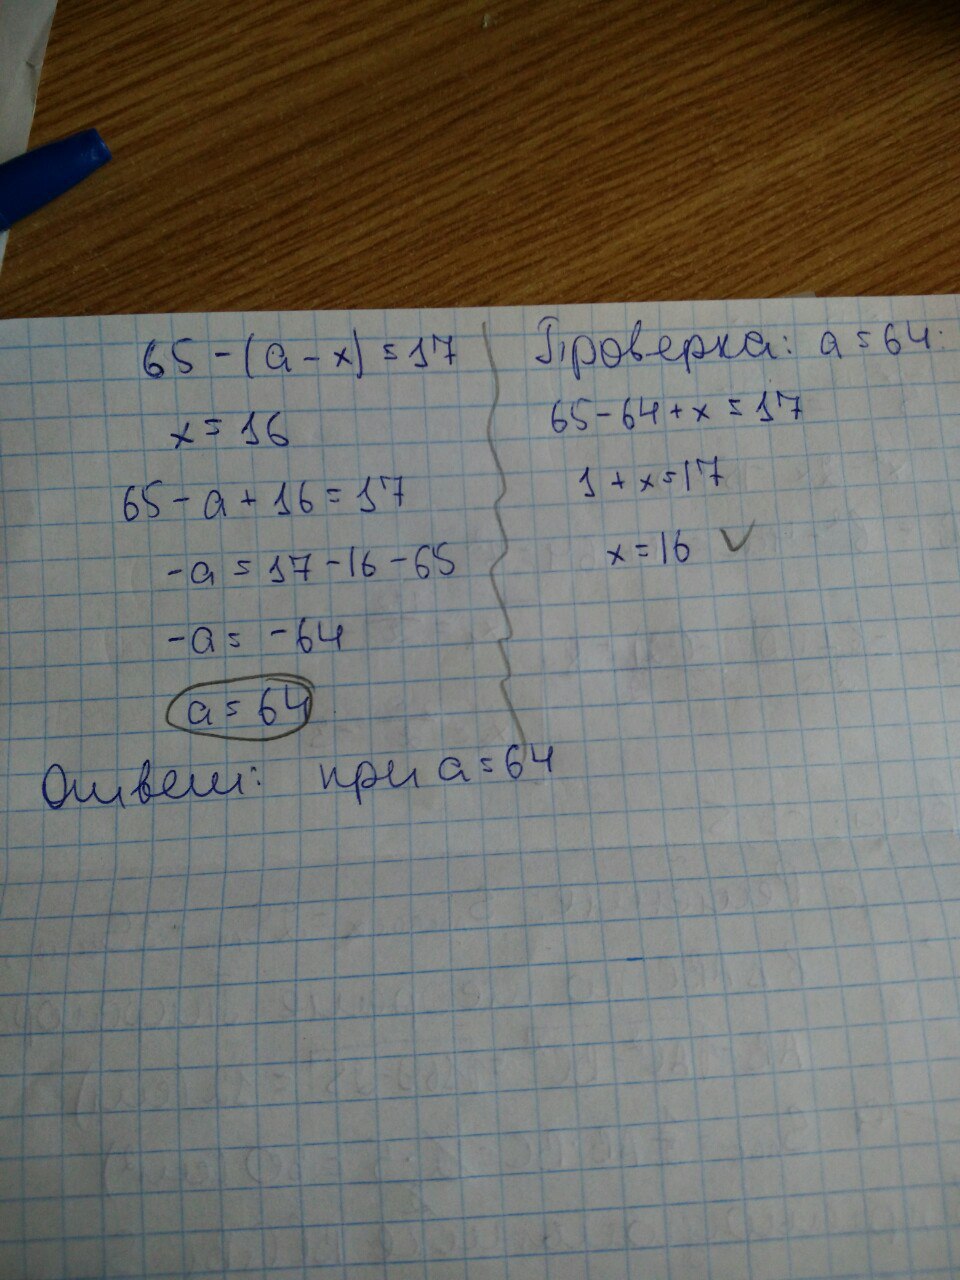 65-(a-x)=17
x=16
65-a+16=17
-a=17-16-65
-a=-64
a=64
Проверка: a=64:
65-64+x=17
1+x=17
x=16 ✓
Ответ: при a=64